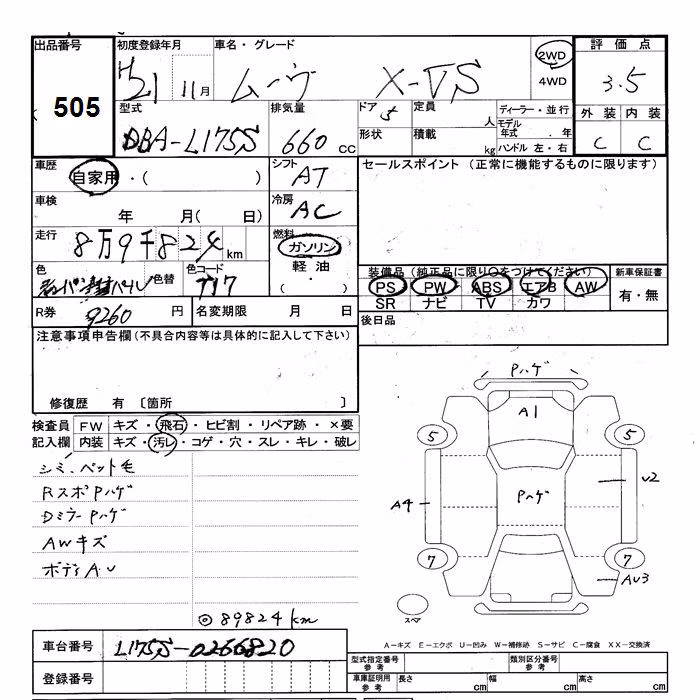 出品番号 初度登録年月 車名・グレード 2WD 評価点
505 H21 11月 ムーヴ X-VS 4WD 3.5
型式 排気量 ドア 5 定員 人 ディーラー・並行 外装 内装
DBA-L175S 660cc 形状 積載 kg モデル年式 . 年 C C
ハンドル 左・右
車歴 自家用・( ) シフト AT セールスポイント (正常に機能するものに限ります)
車検 年 月( 日) 冷房 AC
走行 8万9千824km 燃料 ガソリン
軽油
( ・ )
色 色替 色コード T17 装備品(純正品に限り○をつけてください) 新車保証書
PS PW ABS エアB AW 有・無
SR ナビ TV カワ
R券 9260 円 名変期限 月 日 後日品
注意事項申告欄(不具合内容等は具体的に記入して下さい)
修復歴 有 〔箇所 〕
検査員 FW キズ・飛石・ヒビ割・リペア跡・×要
記入欄 内装 キズ・汚レ・コゲ・穴・スレ・キレ・破レ
シミ.ペット毛
RスポPハゲ
DミラーPハゲ
AWキズ
ボディAU
◎89824km
Pハゲ
A1
5 5
A4 Pハゲ U2
7 7
AU3
スペア
A-キズ E-エクボ U-凹み W-補修跡 S-サビ C-腐食 XX-交換済
車台番号 L175S-0266820
登録番号
型式指定番号 参考 類別区分番号 参考
車庫証明用 参考 長さ cm 幅 cm 高さ cm